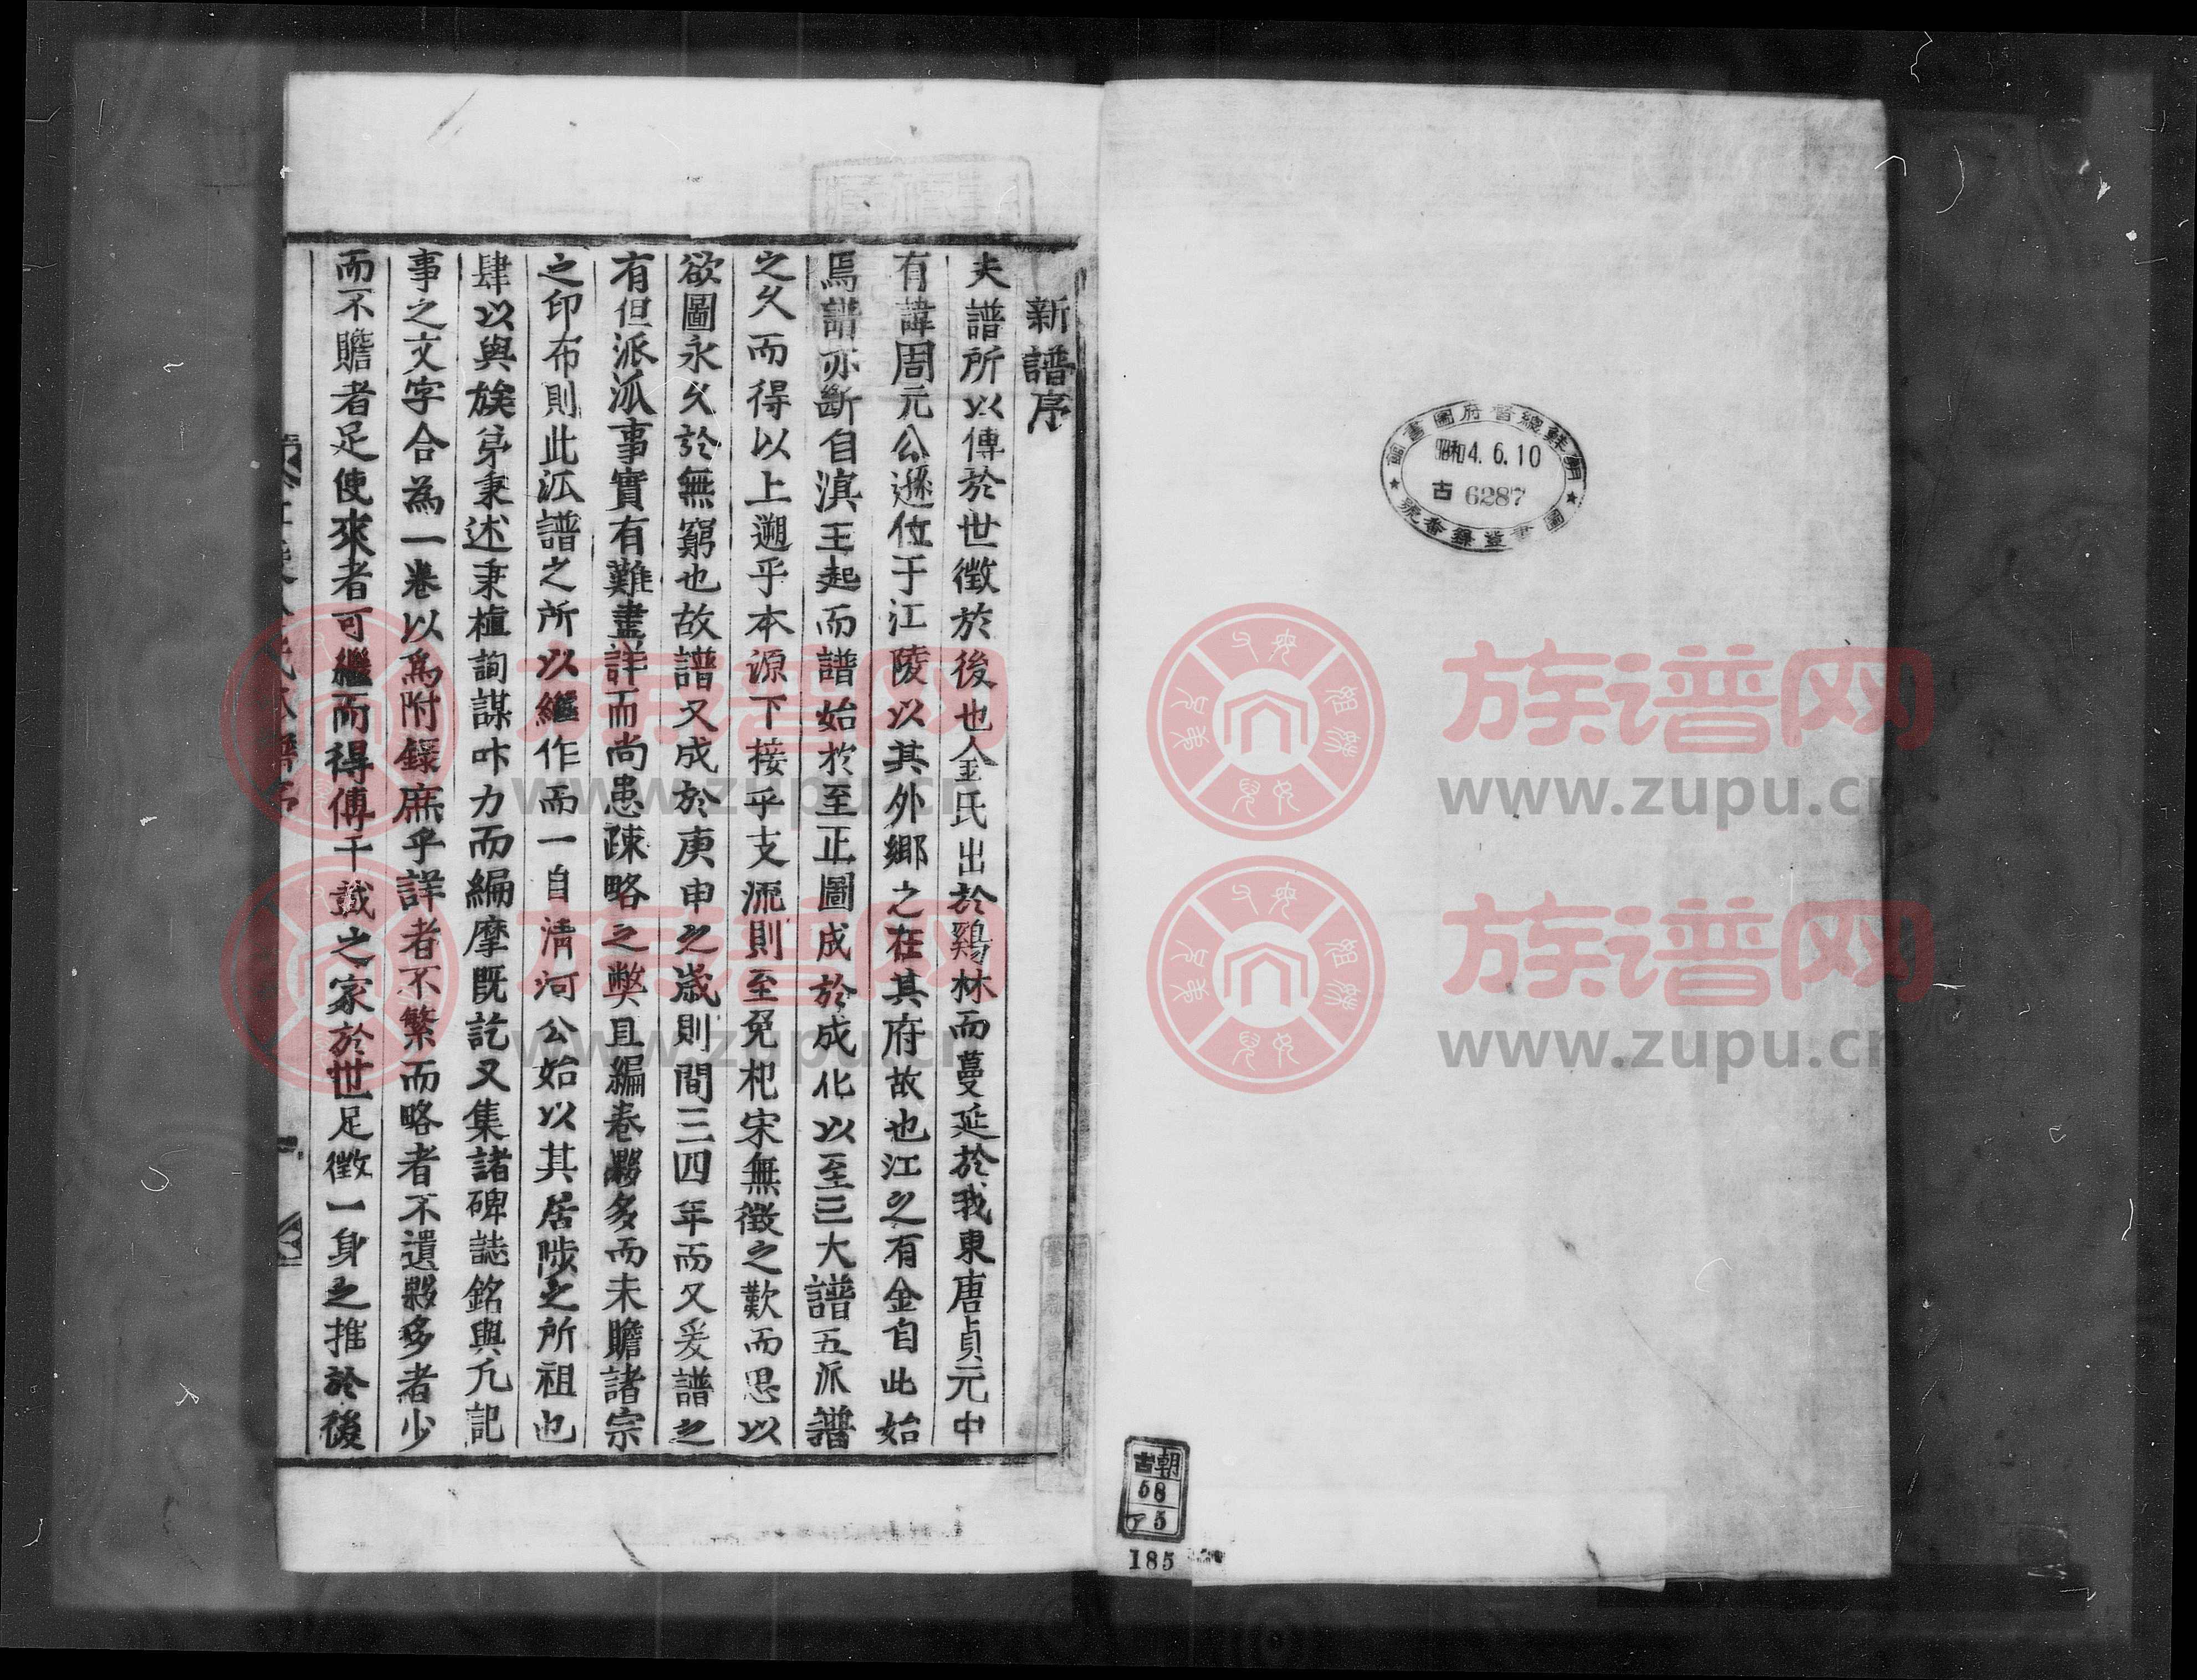 朝鮮總督府圖書館
昭和4.6.10
古6287
圖書登錄番號
古朝
58
ア5
185
新譜序
夫譜所以傳於世徵於後也金氏出於鷄林而蔓延於我東唐貞元中
有諱周元公遜位于江陵以其外鄉之在其府故也江之有金自此始
焉譜亦斷自溟王起而譜始於至正圖成於成化以至三大譜五派譜
之久而得以上遡乎本源下接乎支流則至免杞宋無徵之歎而思以
欲圖永久於無窮也故譜又成於庚申之歲則間三四年而又爰譜之
有但派派事實有難盡詳而尚患疎略之弊且編卷夥多而未贍諸宗
之印布則此派譜之所以繼作而一自淸河公始以其居陟之所祖也
肆以與族弟秉述秉植詢謀咔力而編摩旣訖又集諸碑誌銘與凡記
事之文字合為一卷以爲附錄庶乎詳者不繁而略者不遺夥多者少
而不贍者足使來者可繼而得傳千載之家於世足徵一身之推於後
族谱网
www.zupu.cn
族谱网
www.zupu.cn
族谱网
www.zupu.cn
族谱网
www.zupu.cn